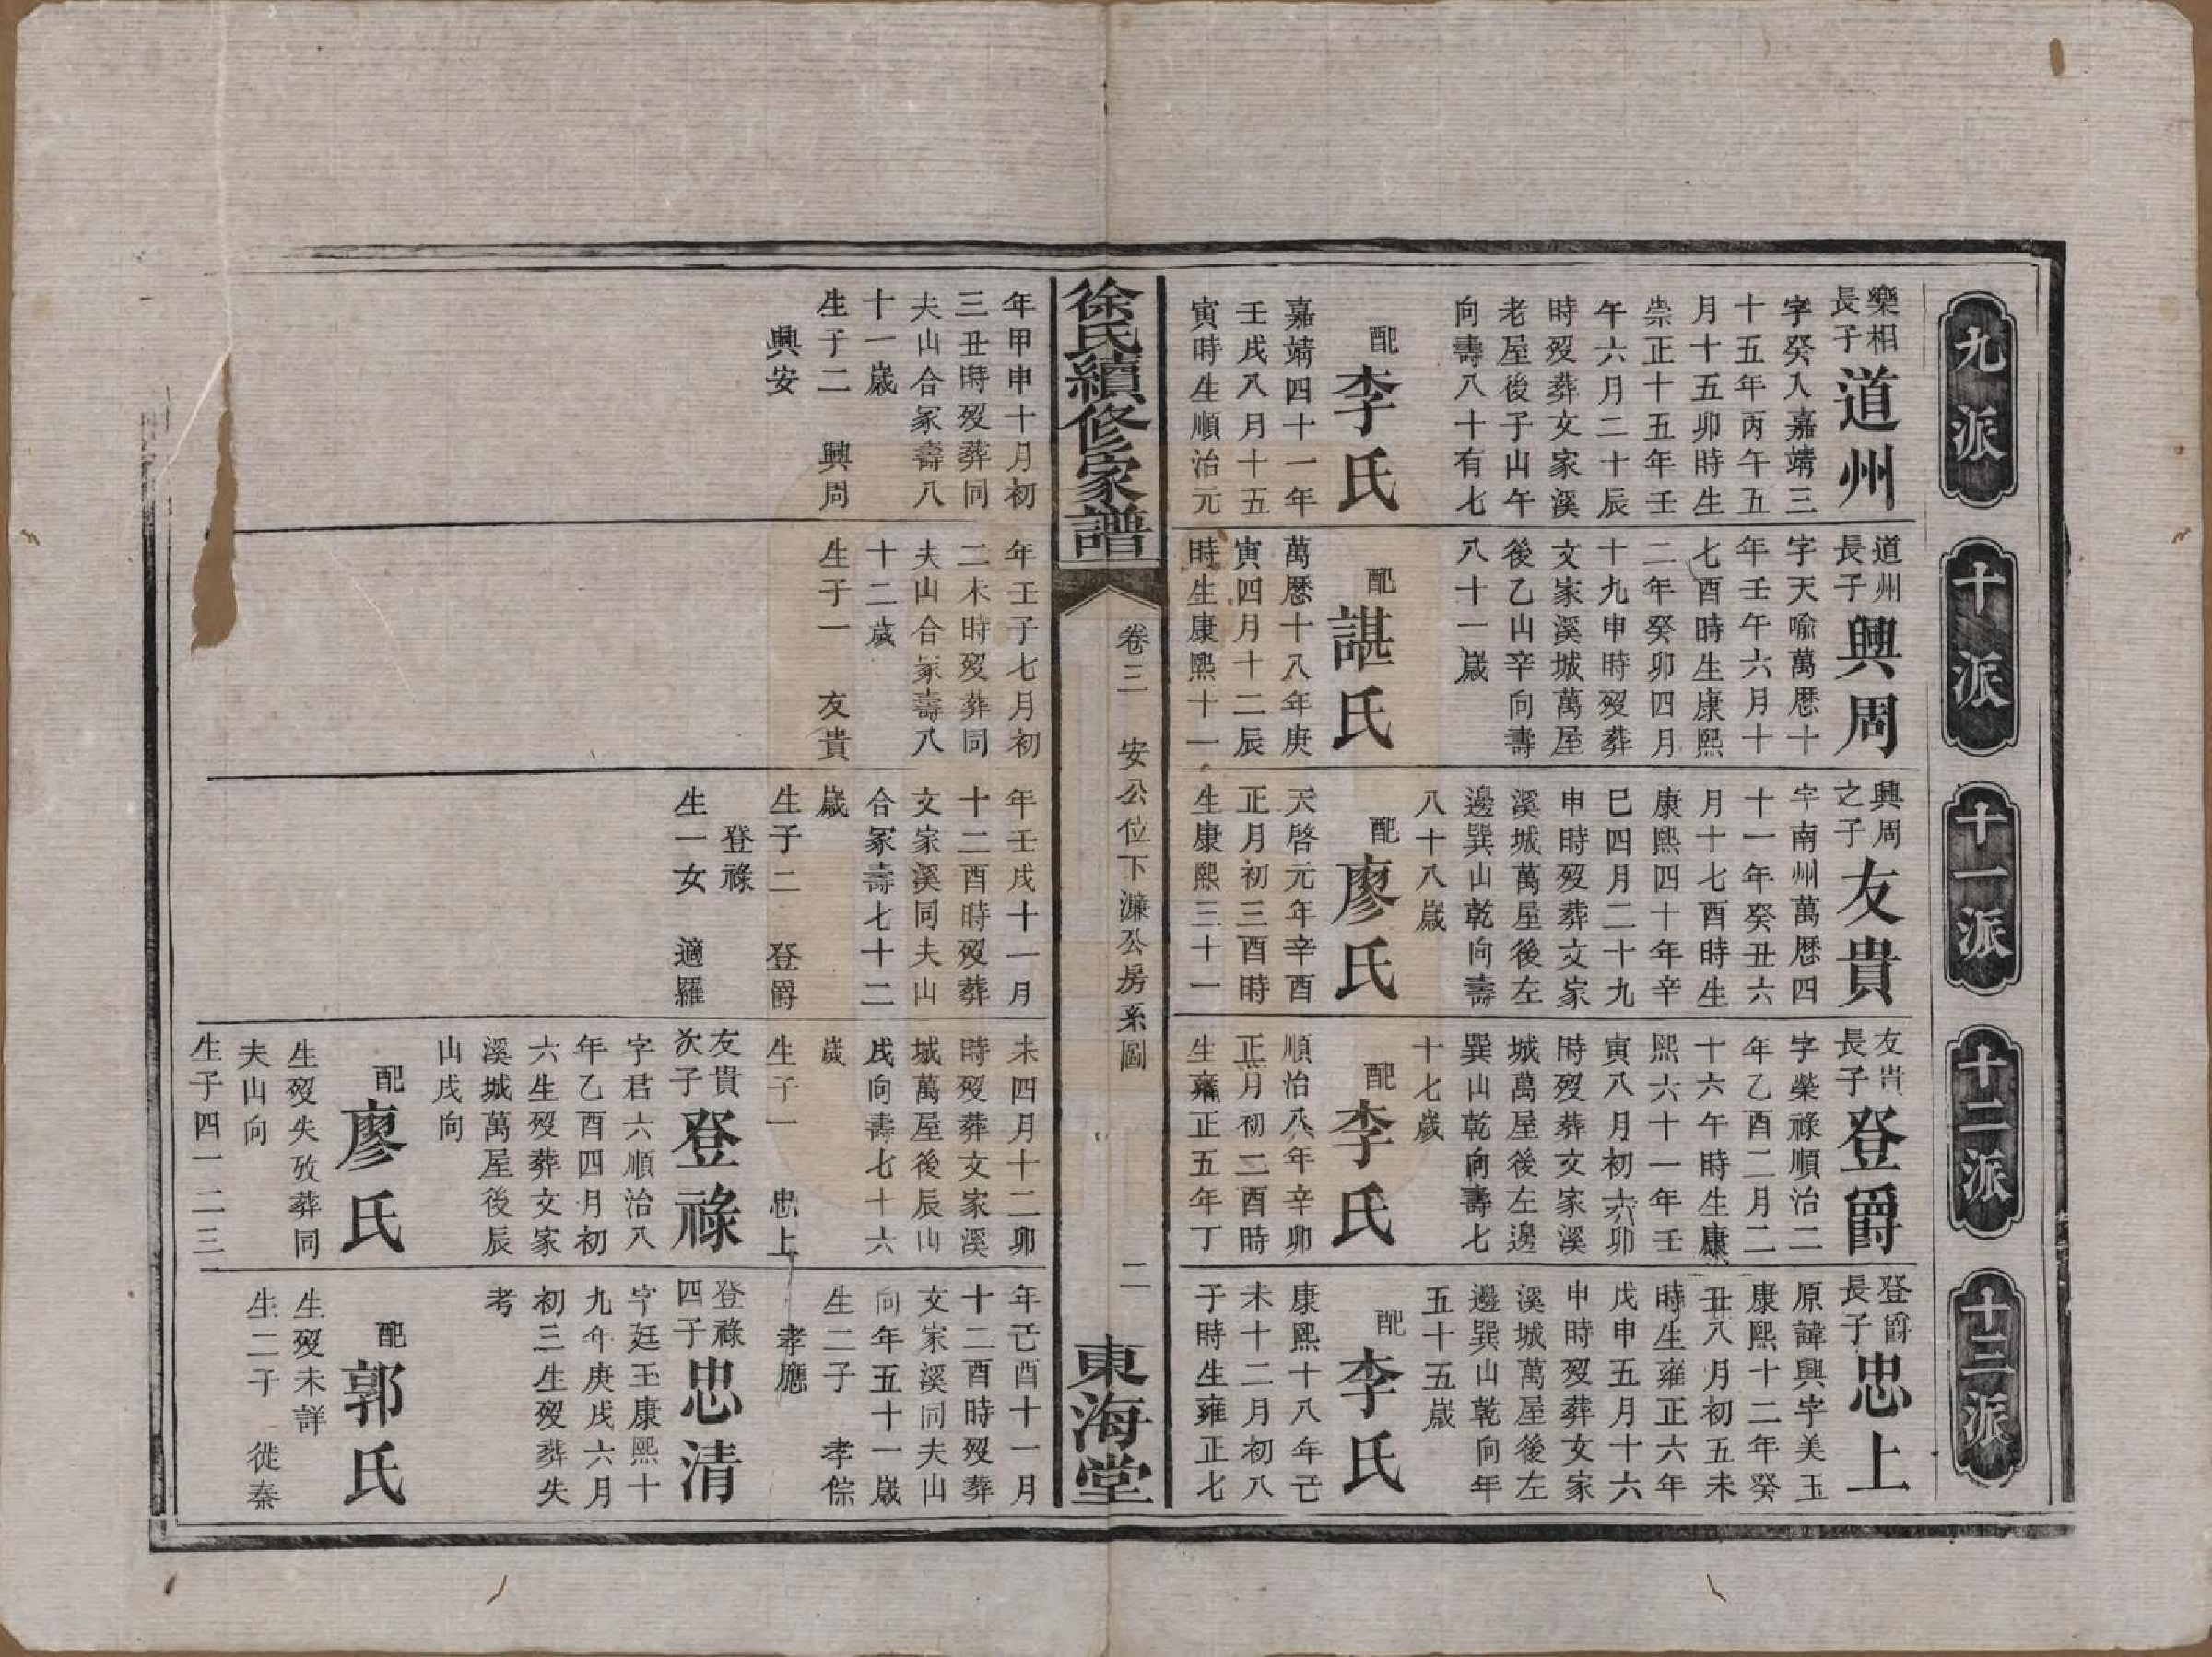 九派
樂相
長子
道州
字癸入嘉靖三
十五年丙午五
月十五卯時生
崇正十五年壬
午六月二十辰
時歿葬文家溪
老屋後子山午
向壽八十有七
配
李氏
嘉靖四十一年
壬戌八月十五
寅時生順治元
年甲申十月初
三丑時歿葬同
夫山合冢壽八
十一歲
生子二 興周
興安
十派
道州
長子
興周
字天喻萬曆十
年壬午六月十
七酉時生康熙
二年癸卯四月
十九申時歿葬
文家溪城萬屋
後乙山辛向壽
八十一歲
配
諶氏
萬曆十八年庚
寅四月十二辰
時生康熙十一
年壬子七月初
二未時歿葬同
夫山合冢壽八
十二歲
生子一 友貴
十一派
興周
之子
友貴
字南州萬曆四
十一年癸丑六
月十七酉時生
康熙四十年辛
巳四月二十九
申時歿葬文家
溪城萬屋後左
邊巽山乾向壽
八十八歲
配
廖氏
天啓元年辛酉
正月初三酉時
生康熙三十一
年壬戌十一月
十二酉時歿葬
文家溪同夫山
合冢壽七十二
歲
生子二 登爵
登祿
生一女 適羅
十二派
友貴
長子
登爵
字榮祿順治二
年乙酉二月二
十六午時生康
熙六十一年壬
寅八月初六卯
時歿葬文家溪
城萬屋後左邊
巽山乾向壽七
十七歲
配
李氏
順治八年辛卯
正月初二酉時
生雍正五年丁
未四月十二卯
時歿葬文家溪
城萬屋後辰山
戌向壽七十六
歲
生子一 忠上
友貴
次子
登祿
字君六順治八
年乙酉四月初
六生歿葬文家
溪城萬屋後辰
山戌向
配
廖氏
生歿失攷葬同
夫山向
生子四一二三
十三派
登爵
長子
忠上
原諱興字美玉
康熙十二年癸
丑八月初五未
時生雍正六年
戊申五月十六
申時歿葬文家
溪城萬屋後左
邊巽山乾向年
五十五歲
配
李氏
康熙十八年己
未十二月初八
子時生雍正七
年己酉十一月
十二酉時歿葬
文家溪同夫山
向年五十一歲
生二子 孝倧
孝應
登祿
四子
忠清
字廷玉康熙十
九年庚戌六月
初三生歿葬失
考
配
郭氏
生歿未詳
生二子 徙秦
徐氏續修家譜
卷三 安公位下濂公房系圖
二
東海堂